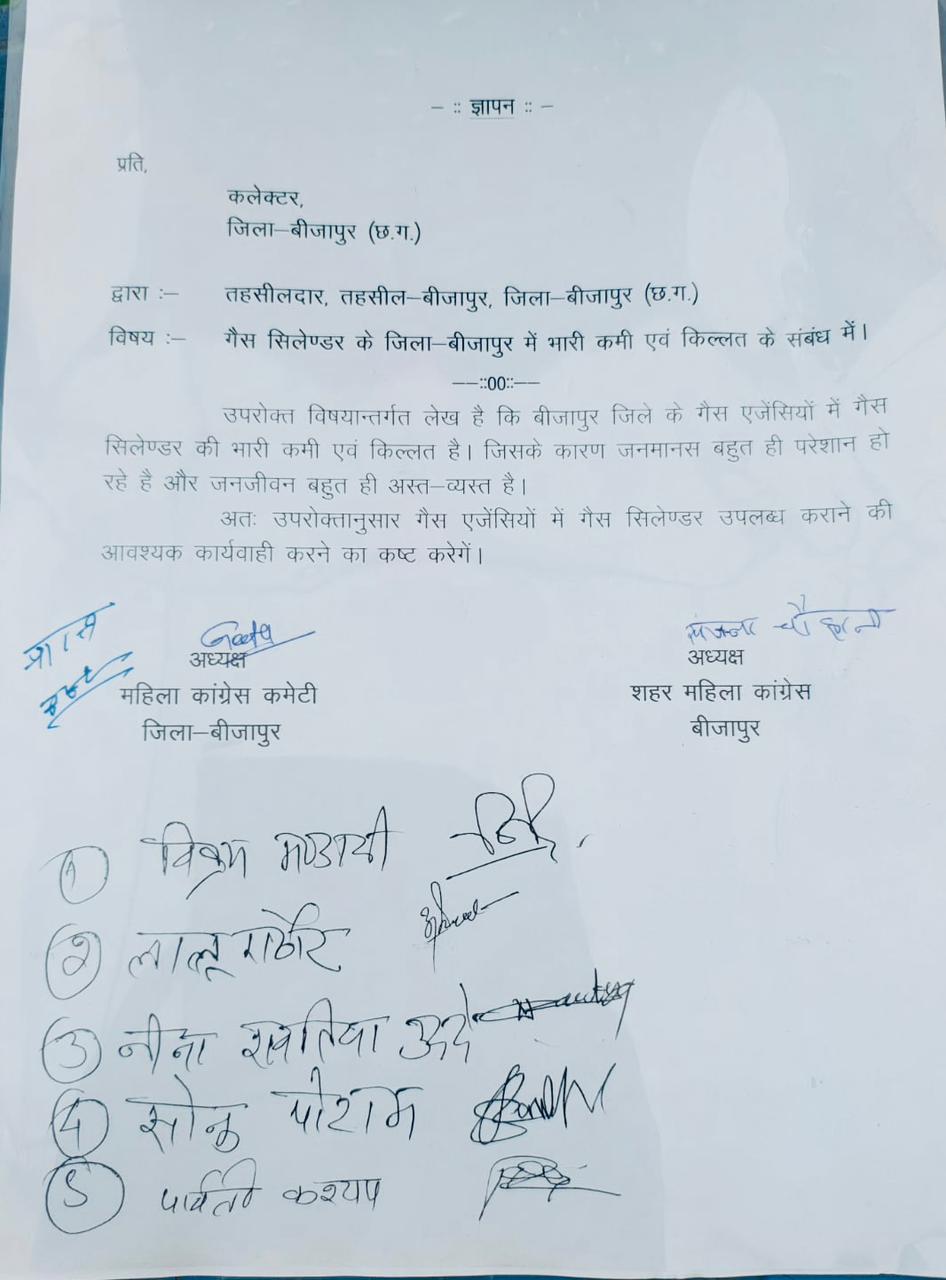 – :: ज्ञापन :: –
प्रति,
कलेक्टर,
जिला–बीजापुर (छ.ग.)
द्वारा :– तहसीलदार, तहसील–बीजापुर, जिला–बीजापुर (छ.ग.)
विषय :– गैस सिलेण्डर के जिला–बीजापुर में भारी कमी एवं किल्लत के संबंध में।
––::00::––
उपरोक्त विषयान्तर्गत लेख है कि बीजापुर जिले के गैस एजेंसियों में गैस
सिलेण्डर की भारी कमी एवं किल्लत है। जिसके कारण जनमानस बहुत ही परेशान हो
रहे है और जनजीवन बहुत ही अस्त–व्यस्त है।
अतः उपरोक्तानुसार गैस एजेंसियों में गैस सिलेण्डर उपलब्ध कराने की
आवश्यक कार्यवाही करने का कष्ट करेगें।
Geeta
अध्यक्ष
महिला कांग्रेस कमेटी
जिला–बीजापुर
अध्यक्ष
शहर महिला कांग्रेस
बीजापुर
1 विक्रम मण्डावी
2 लालू राठौर
3 नीना उद्दे
4 सोनू पोटाम
5 पार्वती कश्यप